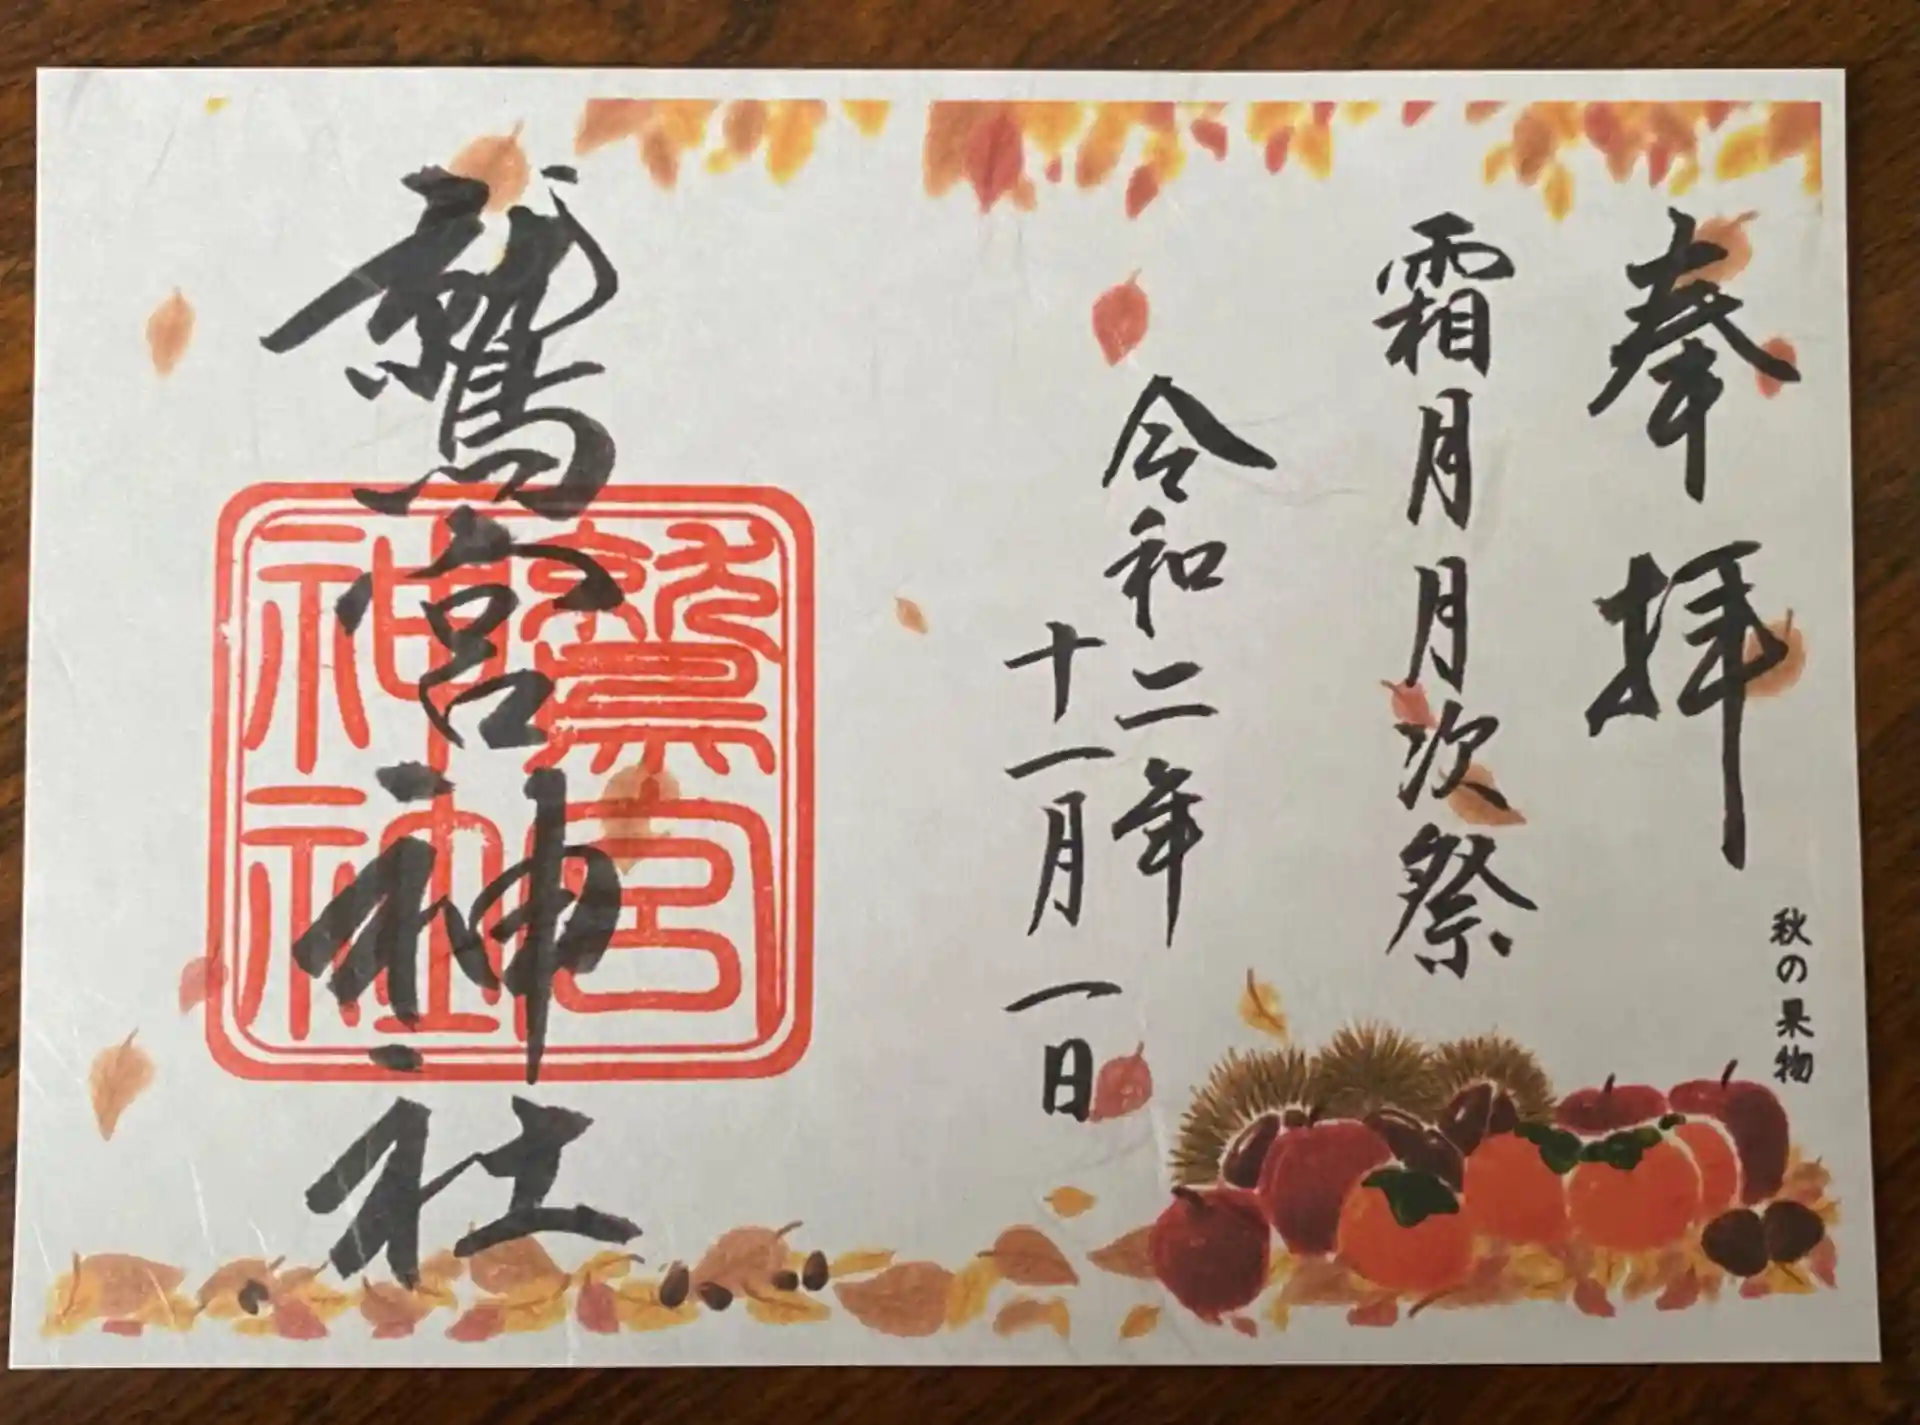 奉拝
秋の果物
霜月月次祭
令和二年
十一月一日
鷲宮神社
鷲宮
神社